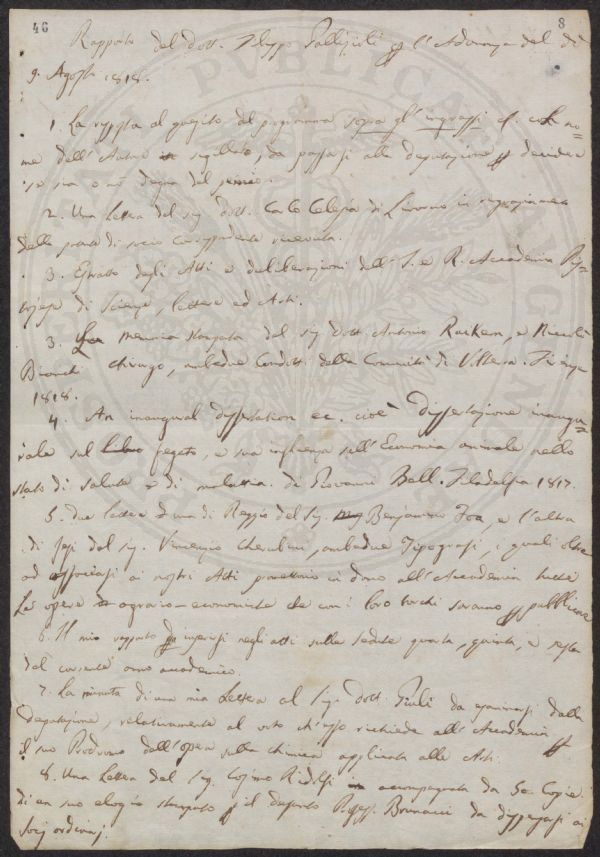 46
8
Rapporto del dott. Filippo Gallizioli per l'Adunanza del dì
9. Agosto 1818.
1. La risposta al quesito del programma sopra gl'ingrassi ec. col no=
me dell'Autore sigillato, da passarsi alla deputazione per decidere
se sia o nò degna del premio.
2. Una Lettera del sig. dott. Carlo Calisja di Livorno in ringraziamento
della patente di socio corrispondente ricevuta.
3. Estratto degli Atti e deliberazioni dell'I. e R. Accademia Pi=
stojese di Scienze, lettere ed Arti.
3. memoria stampata del sig. dott. Antonio Racken, e Niccolò
Bianchi chirurgo, ambedue condotti della Comunità di Volterra. Firenze
1818.
4. An inaugural dissertation ec. cioè dissertazione inaugu=
rale sul fegato, e sua influenza sull'Economia animale nello
stato di salute e di malattia. di Giovanni Bell. Filadelfia 1817.
5. due lettere una di Reggio del Sig. Benjamino Foa, e l'altra
di Jesi del sig. Vincenzio Cherubini, ambedue Tipografi, i quali oltre
ad associarsi ai nostri Atti promettono in dono all'Accademia tutte
le opere agrario-economiche che con i loro torchi saranno per pubblicare
6. Il mio rapporto da inserirsi negli atti sulle sedute quarta, quinta, e sesta
del corrente anno accademico.
7. La minuta di una mia Lettera al Sig. dott. Giuli da esaminarsi dalla
deputazione, relativamente al voto ch'esso richiede all'Accademia per
il suo Prodromo dell'opera sulla chimica applicata alle Arti.
8. Una Lettera del Sig. Cosimo Ridolfi accompagnata da 50. Copie
di un suo elogio stampato per il defunto Profess. Brunacci da dispensarsi ai
socj ordinarj.
PROSPERITATI PUBLICAE AUGENDAE